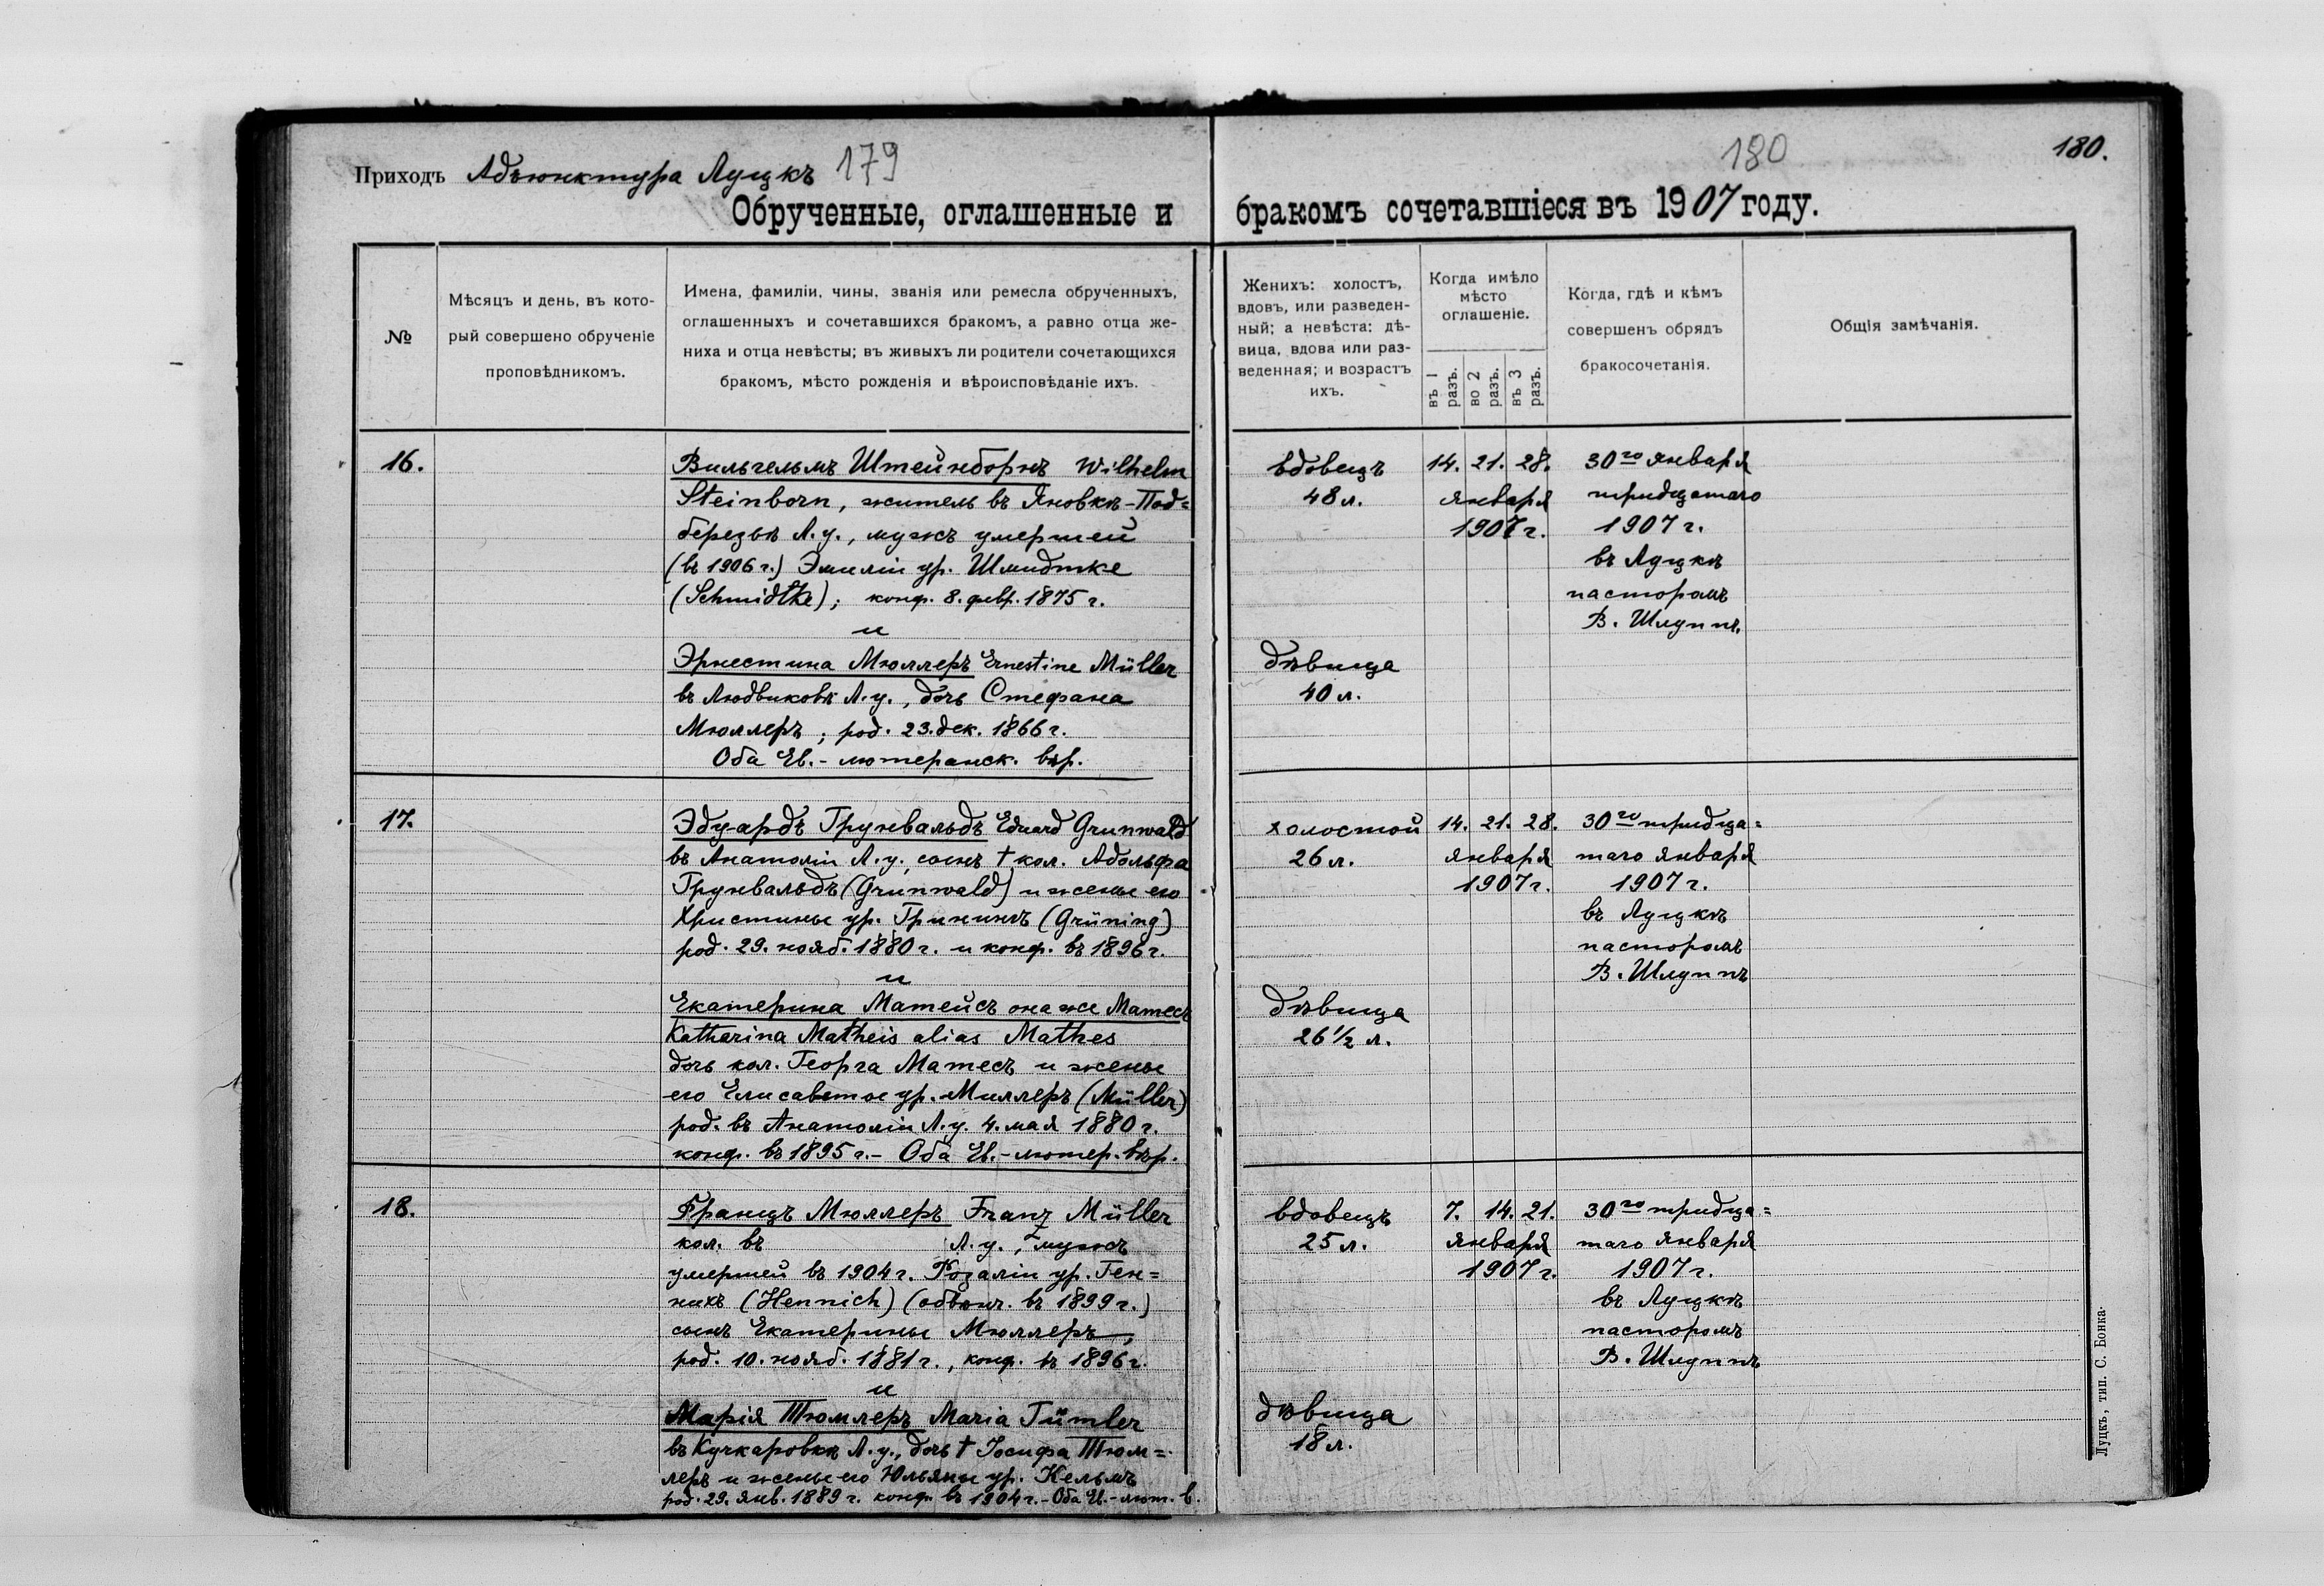 Приходъ Адъюнктура Луцкъ 179
Обрученные, оглашенные и
№
Мѣсяцъ и день, въ кото-
рый совершено обрученіе
проповѣдникомъ.
Имена, фамиліи, чины, званія или ремесла обрученныхъ,
оглашенныхъ и сочетавшихся бракомъ, а равно отца же-
ниха и отца невѣсты; въ живыхъ ли родители сочетающихся
бракомъ, мѣсто рожденія и вѣроисповѣданіе ихъ.
16.
Вильгельмъ Штейнборнъ Wilhelm
Steinborn, житель въ Яновкѣ-Под=
березьѣ Л.у., мужъ умершей
(въ 1906 г.) Эмиліи ур. Шмидтке
(Schmidtke); конф. 8. февр. 1875 г.
и
Эрнестина Мюллеръ Ernestine Müller
въ Людвиковкѣ Л.у., дочь Стефана
Мюллеръ; род. 23. дек. 1866 г.
Оба Ев.-лютеранск. вѣр.
17.
Эдуардъ Грунвальдъ Eduard Grunwald
въ Анатоліи Л.у. сынъ † кол. Адольфа
Грунвальдъ (Grunwald) и жены его
Христины ур. Грининъ (Grüning)
род. 29. нояб. 1880 г. и конф. въ 1896 г.
и
Екатерина Матейсъ она же Матесъ
Katharina Matheis alias Mathes
дочь кол. Георга Матесъ и жены
его Елисаветы ур. Миллеръ (Müller)
род. въ Анатоліи Л.у. 4. мая 1880 г.
конф. въ 1895 г. - Оба Ев.-лютер. вѣр.
18.
Францъ Мюллеръ Franz Müller
кол. въ Л.у., мужъ
умершей въ 1904 г. Розаліи ур. Ген=
нихъ (Hennich) (обвѣнч. въ 1899 г.)
сынъ Екатерины Мюллеръ,
род. 10. нояб. 1881 г., конф. въ 1896 г.
и
Марія Тюмлеръ Maria Tümler
въ Кучкаровкѣ Л.у., дочь † Іосифа Тюм=
леръ и жены его Юльяны ур. Кельмъ
род. 29. янв. 1889 г. конф. въ 1904 г. - Оба Ев.-лют. в.
180
180.
бракомъ сочетавшіеся въ 1907 году.
Женихъ: холостъ,
вдовъ, или разведен-
ный; а невѣста: дѣ-
вица, вдова или раз-
веденная; и возрастъ
ихъ.
Когда имѣло
мѣсто
оглашеніе.
въ 1 разъ.
во 2 разъ.
въ 3 разъ.
Когда, гдѣ и кѣмъ
совершенъ обрядъ
бракосочетанія.
Общія замѣчанія.
вдовецъ 14. 21. 28. 30го января
48 л. января тридцатаго
1907 г. 1907 г.
въ Луцкѣ
пасторомъ
В. Шлуппъ
дѣвица
40 л.
холостой 14. 21. 28. 30го тридца=
26 л. января таго января
1907 г. 1907 г.
въ Луцкѣ
пасторомъ
В. Шлуппъ
дѣвица
26 1/2 л.
вдовецъ 7. 14. 21. 30го тридца=
25 л. января таго января
1907 г. 1907 г.
въ Луцкѣ
пасторомъ
В. Шлуппъ
дѣвица
18 л.
Луцкъ, тип. С. Бонка.